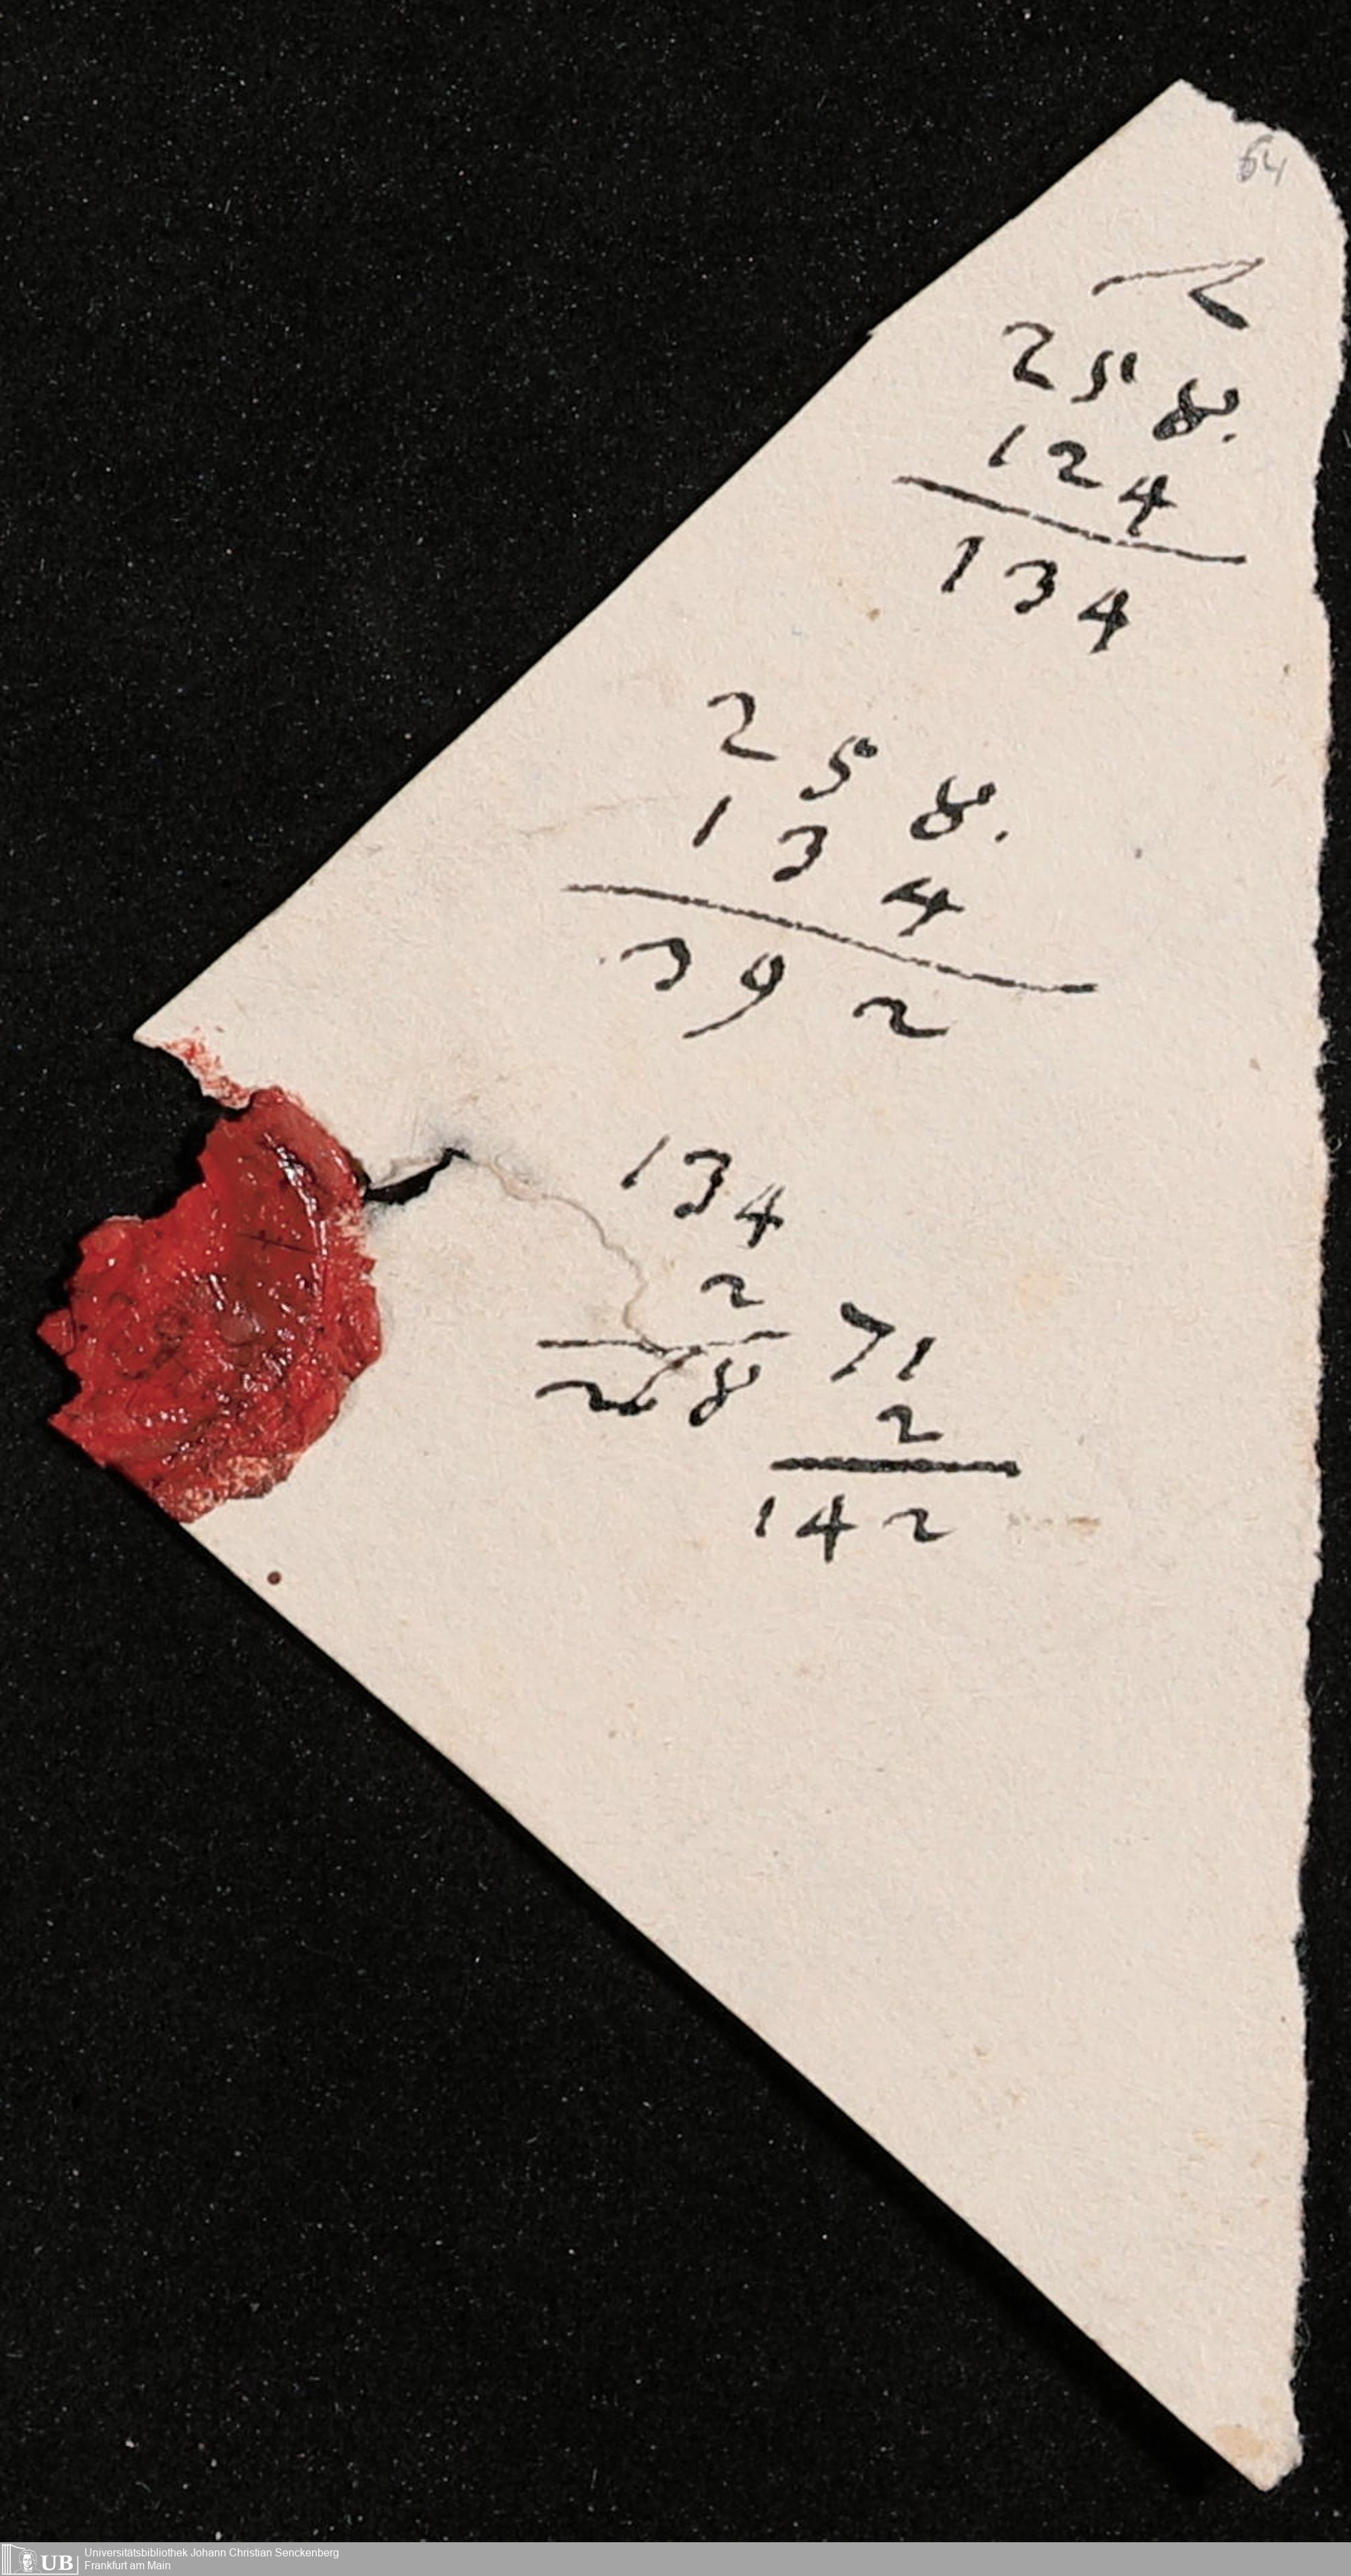 64
258.
124
134
258.
134
392
134
2
268
71
2
142
UB Universitätsbibliothek Johann Christian Senckenberg
Frankfurt am Main